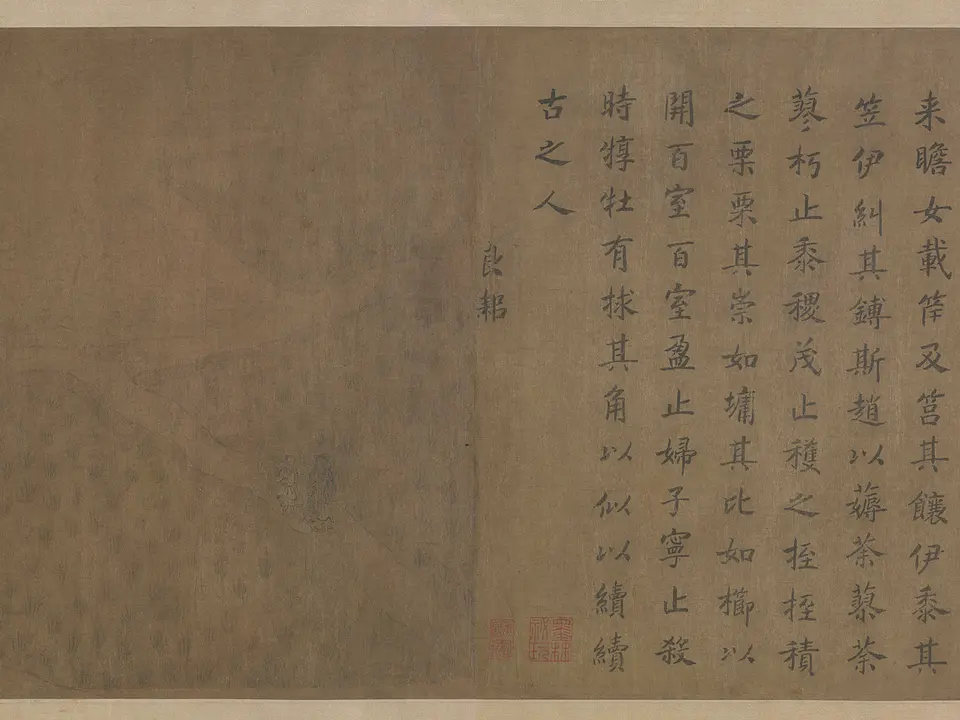 来瞻女載筐及筥其饟伊黍其
笠伊糾其鎛斯趙以薅荼蓼荼
蓼朽止黍稷茂止穫之挃挃積
之栗栗其崇如墉其比如櫛以
開百室百室盈止婦子寧止殺
時犉牡有捄其角以似以續續
古之人
良耜
墨林
祕玩